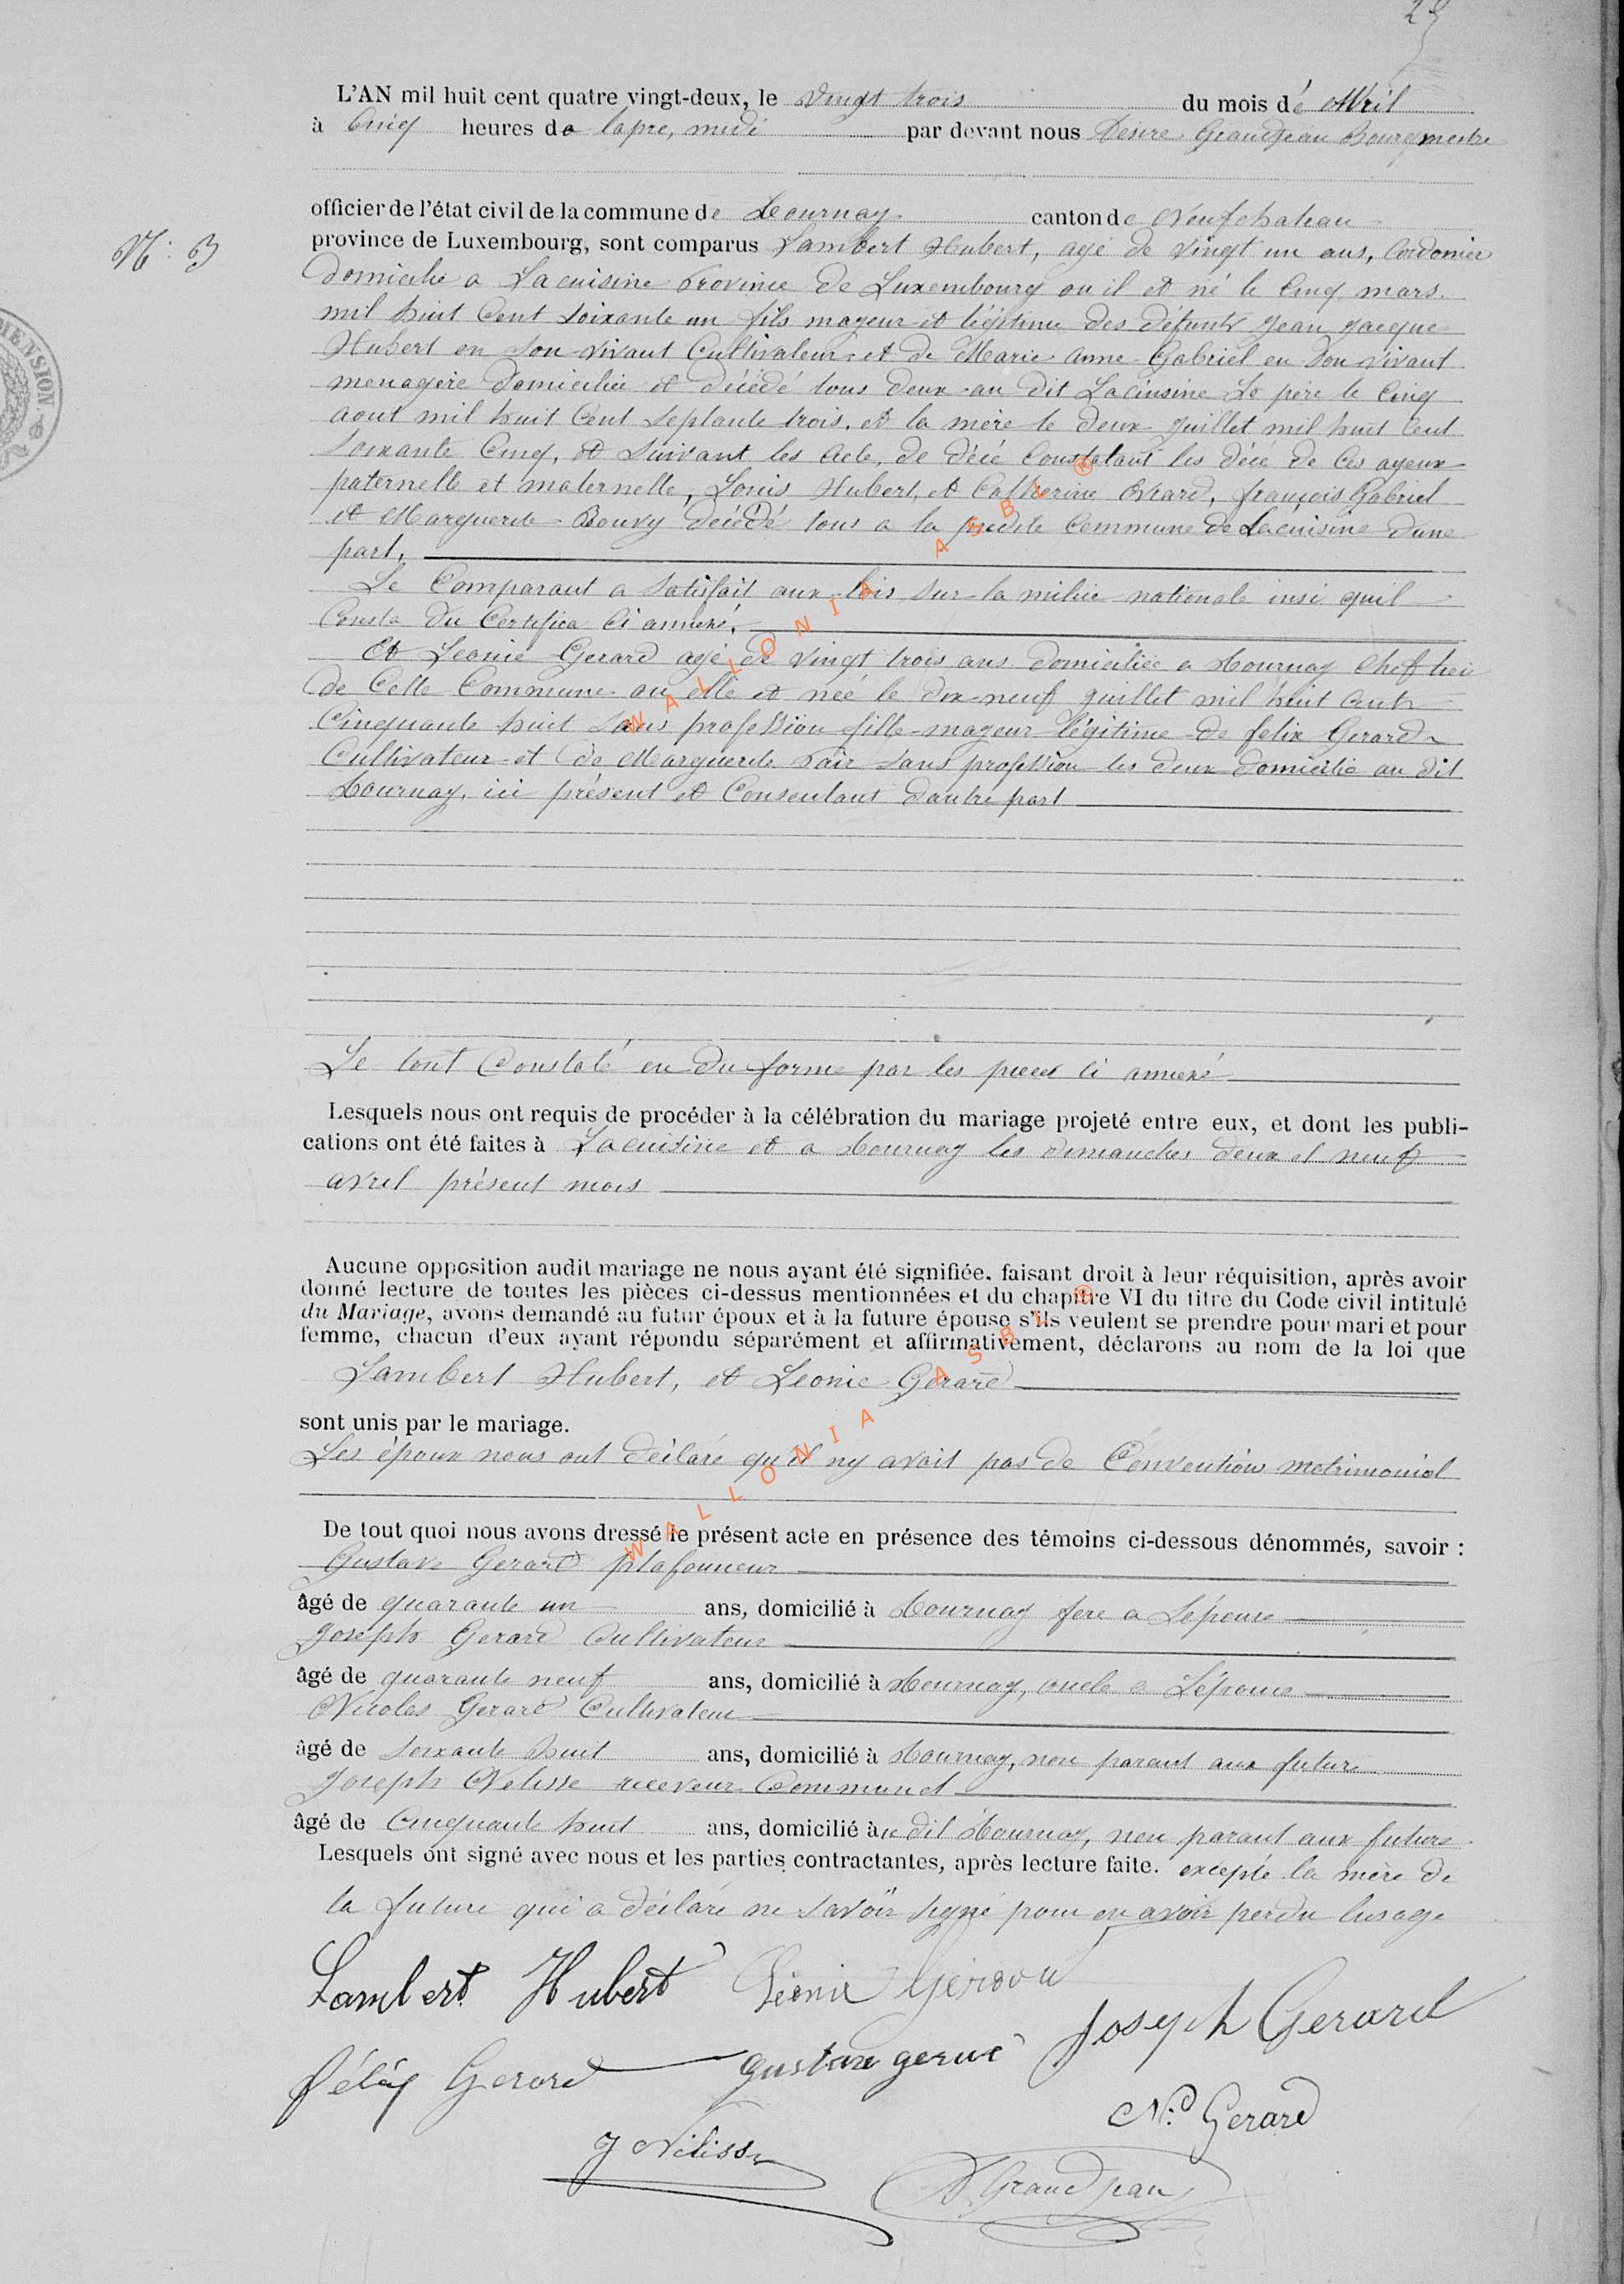 L'AN mil huit cent quatre vingt-deux, le vingt trois du mois dé Avril
à Cinq heures de lapre, midi par devant nous Desire Grandjean Bourgmestre
officier de l'état civil de la commune de Tournay canton de Neufchateau
N: 3
province de Luxembourg, sont comparus Lambert Hubert, agé de vingt un ans, Cordonier
domicilie a Lacuisine Province de Luxembourg ou il et né le Cinq mars
mil huit Cent soixante un fils mageur et légitime des défunts Jean Jacque
Hubert en son vivant Cultivateur et de Marie Anne Gabriel en son vivant
menagère domiciliée et décédé tous deux au dit Lacuisine Le père le Cinq
aout mil huit Cent septante trois, et la mère le deux juillet mil huit Cent
soixante Cinq, et suivant les Acte, de décé Constatant les décé de Ces ayeux
paternelle et maternelle, Louis Hubert, et Catherine Evrard, françois Gabriel
et Marguerite Bouvy décédé tous a la predite Commune de Lacuisine dune
part,
Le Comparant a satisfait aux lois sur la milice nationale insi quil
Consta du Certifica Ci annexé,
Et Leonie Gerard agé de vingt trois ans domiciliée a Tournay Chef lieu
de Cette Commune ou elle et née le dix-neuf juillet mil huit Cent
Cinquante huit sans profession fille mageur légitime de felix Gerard
Cultivateur et de Marguerite Pair sans profession les deux domicilié au dit
Tournay, ici présent et Consentant dautre part
Le tout Constaté en du forme par les pieces ci annexé
Lesquels nous ont requis de procéder à la célébration du mariage projeté entre eux, et dont les publi-
cations ont été faites à Lacuisine et a Tournay les dimanches deux et neuf
avril présent mois
Aucune opposition audit mariage ne nous ayant été signifiée. faisant droit à leur réquisition, après avoir
donné lecture de toutes les pièces ci-dessus mentionnées et du chapitre VI du titre du Code civil intitulé
du Mariage, avons demandé au futur époux et à la future épouse s'ils veulent se prendre pour mari et pour
femme, chacun d'eux ayant répondu séparément et affirmativement, déclarons au nom de la loi que
Lambert Hubert, et Leonie Gerard
sont unis par le mariage.
Les époux nous ont déclaré qu'il ny avait pas de Convention metrimonial
De tout quoi nous avons dressé le présent acte en présence des témoins ci-dessous dénommés, savoir :
Gustave Gerard plafonneur
âgé de quarante un ans, domicilié à Tournay fere a Lépouse
Joseph Gerard Cultivateur
âgé de quarante neuf ans, domicilié à Tournay, oncle a Lépouse
Nicolas Gerard Cultivateur
âgé de soixante huit ans, domicilié à Tournay, non parant aux future
Joseph Nelisse receveur Communal
âgé de Cinquante huit ans, domicilié àu dit Tournay, non parant aux future
Lesquels ont signé avec nous et les parties contractantes, après lecture faite. excepté la mère de
la future qui a déclaré ne savoir signé pour en avoir perdu lusage
Lambert Hubert Léonie Gérard
Joseph Gerard
félix Gerard gustave gerard
N. Gerard
J Nelisse
D Grandjean
WALLONIA ASBL ®
WALLONIA ASBL ®